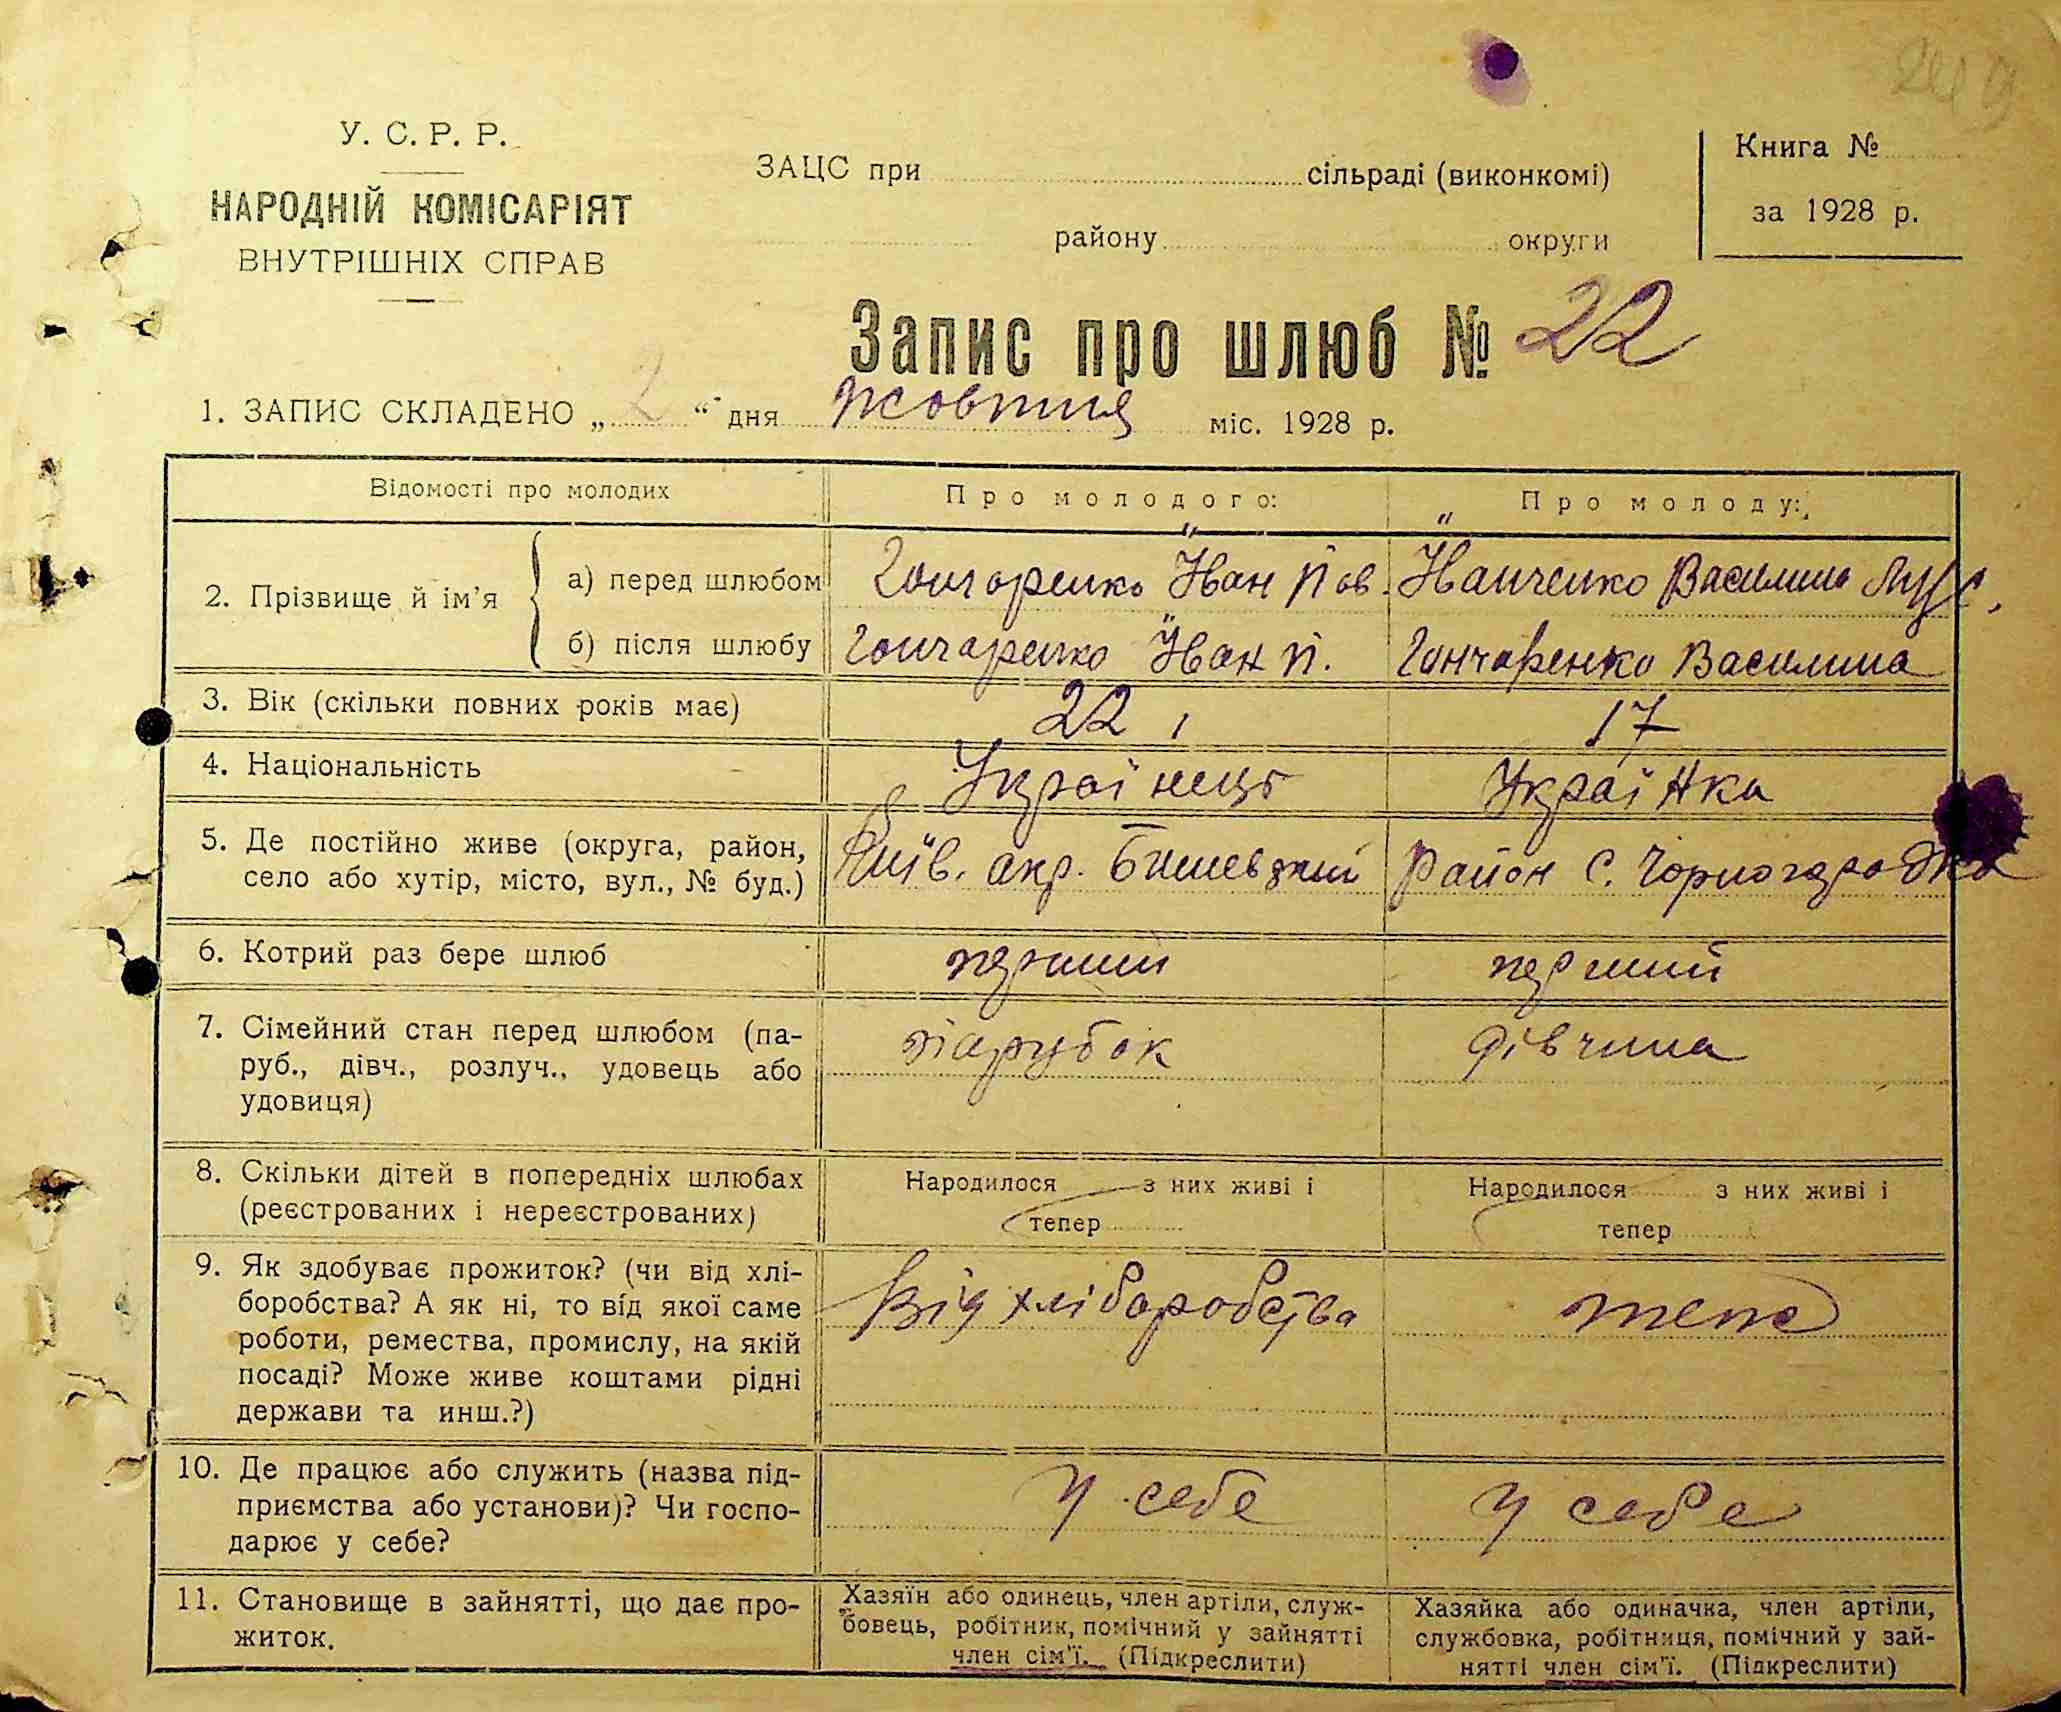 У. С. Р. Р.
НАРОДНІЙ КОМІСАРІЯТ
ВНУТРІШНІХ СПРАВ
ЗАЦС при сільраді (виконкомі)
району округи
Книга №
за 1928 р.
Запис про шлюб № 22
1. ЗАПИС СКЛАДЕНО „ 2 “ дня жовтня міс. 1928 р.
Відомості про молодих
Про молодого:
Про молоду:
2. Прізвище й ім’я
а) перед шлюбом
Гончаренко Іван Пав.
Іванченко Василина
б) після шлюбу
Гончаренко Іван П.
Гончаренко Василина
3. Вік (скільки повних років має)
22
17
4. Національність
Українець
Українка
5. Де постійно живе (округа, район,
село або хутір, місто, вул., № буд.)
Київ. окр. Бишевський
район с. Чорногородка
6. Котрий раз бере шлюб
перший
перший
7. Сімейний стан перед шлюбом (па-
руб., дівч., розлуч., удовець або
удовиця)
парубок
дівчина
8. Скільки дітей в попередніх шлюбах
(реєстрованих і нереєстрованих)
Народилося з них живі і
тепер
Народилося з них живі і
тепер
9. Як здобуває прожиток? (чи від хлі-
боробства? А як ні, то від якої саме
роботи, ремества, промислу, на якій
посаді? Може живе коштами рідні
держави та инш.?)
Від хліборобства
теж
10. Де працює або служить (назва під-
приємства або установи)? Чи госпо-
дарює у себе?
У себе
У себе
11. Становище в зайнятті, що дає про-
житок.
Хазяїн або одинець, член артіли, служ-
бовець, робітник, помічний у зайнятті
член сім’ї. (Підкреслити)
Хазяйка або одиначка, член артіли,
службовка, робітниця, помічний у зай-
нятті член сім’ї. (Підкреслити)